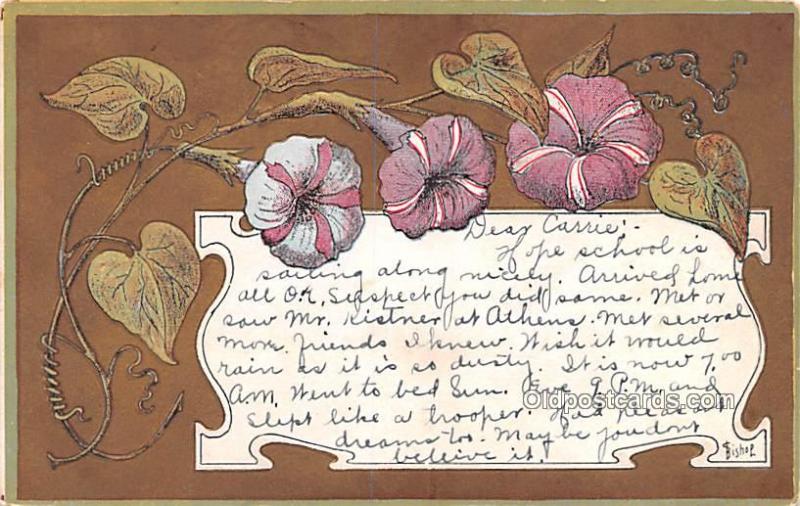 Dear Carrie:-
Hope school is
sailing along nicely. Arrived home
all O.K, Suspect you did same. Met or
saw Mr. Kistner at Athens. Met several
more friends I knew. Wish it would
rain as it is so dusty. It is now 7.00
A.M. Went to bed Sun. Eve 9 P.M. and
Slept like a trooper. Had pleasant
dreams too. Maybe you dont
beleive it.
Oldpostcards.com
Bishop